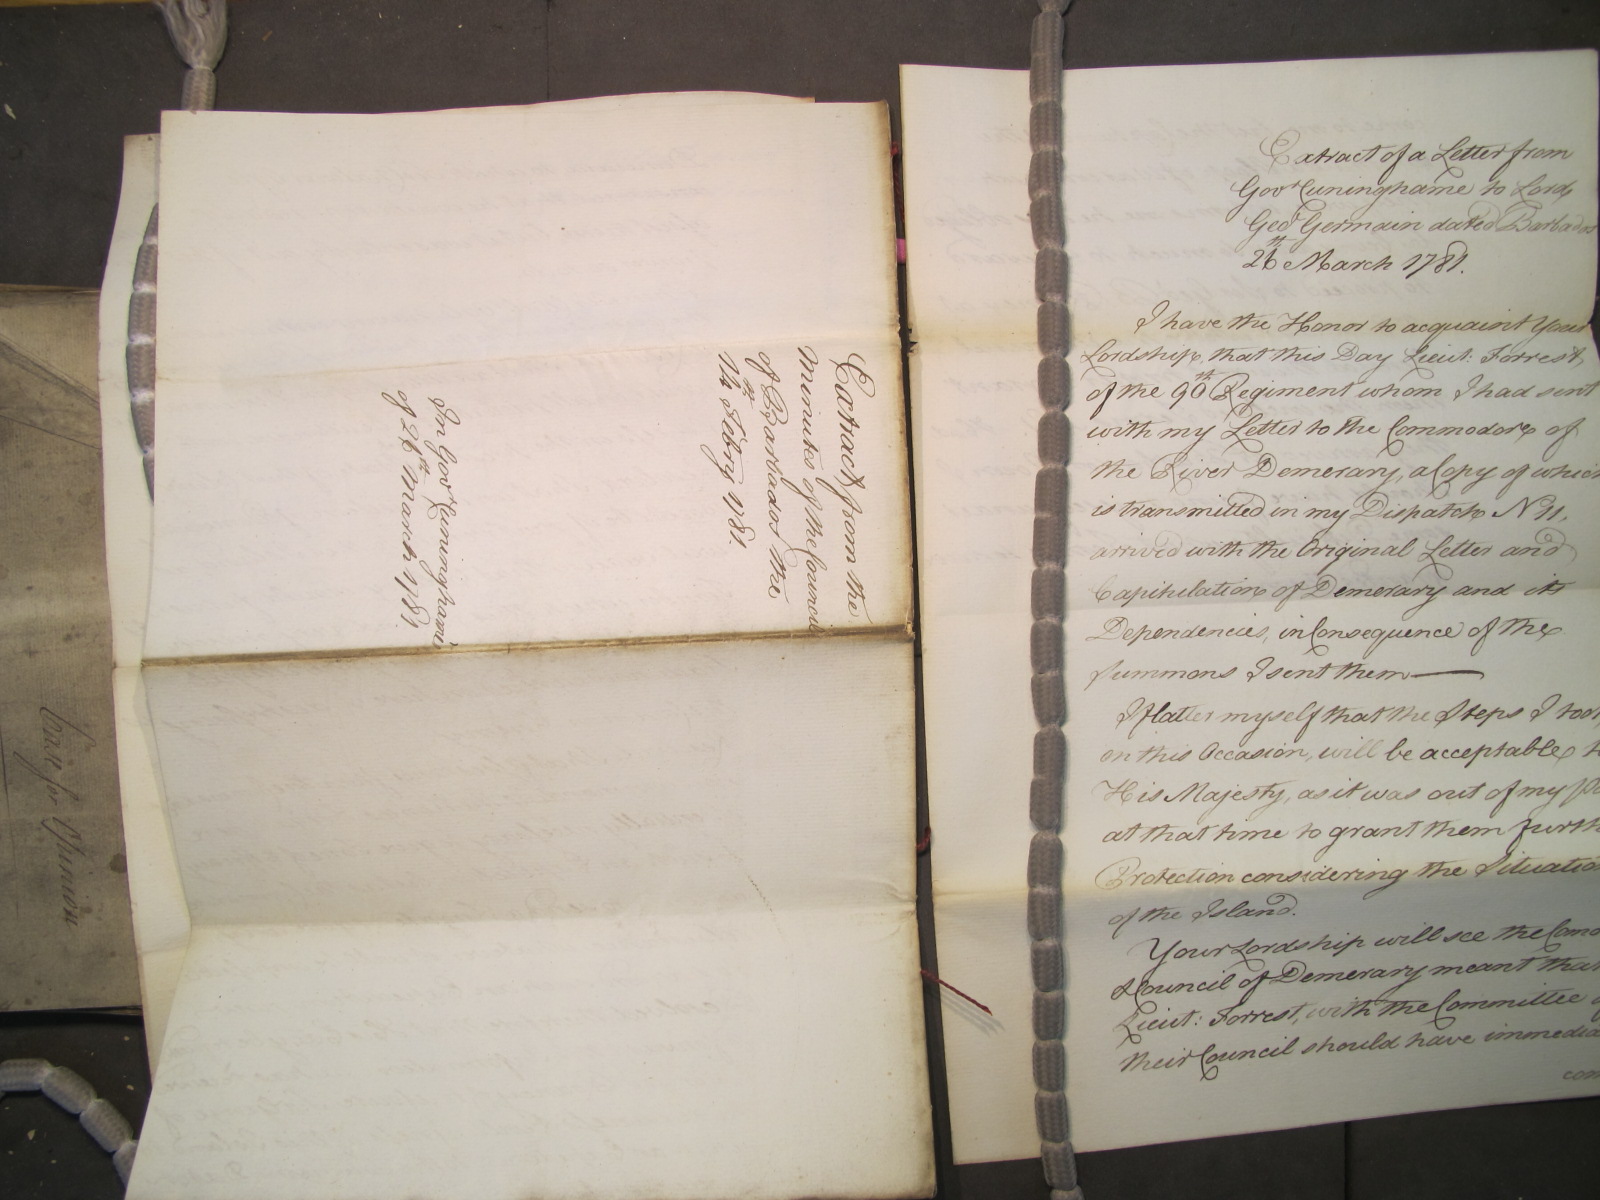 Case for Opinion
Extract from the
Minutes of the Council
of Barbados the
14th. Febry 1781.
In Govr. Cuninghame's
of 26th. March 1781.
Extract of a Letter from
Govr. Cuninghame to Lord
Geo. Germain dated Barbados
26th. March 1781.
I have the Honor to acquaint Your
Lordship, that this Day Lieut: Forrest,
of the 90th. Regiment whom I had sent
with my Letter to the Commodore of
the River Demerary, a Copy of which
is transmitted in my Dispatch No. 11,
arrived with the Original Letter and
Capitulation of Demerary and its
Dependencies, in Consequence of the
Summons I sent them—
I flatter myself that the Steps I took
on this Occasion, will be acceptable to
His Majesty, as it was out of my
at that time to grant them
Protection considering the Situation
of the Island.
Your Lordship will see the
& Council of Demerary meant that
Lieut: Forrest, with the Committee of
their Council should have